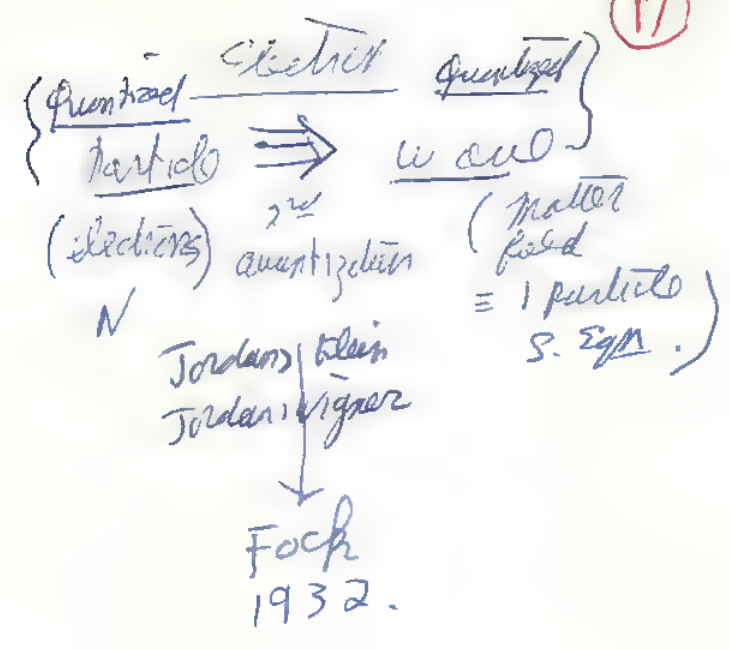 17
Quantized Quantized
Particle ⇒ wave
(electrons) 2nd quantization (matter field
N ≡ 1 particle
S. Eqn.)
Jordan, Klein
Jordan, Wigner
Fock
1932.